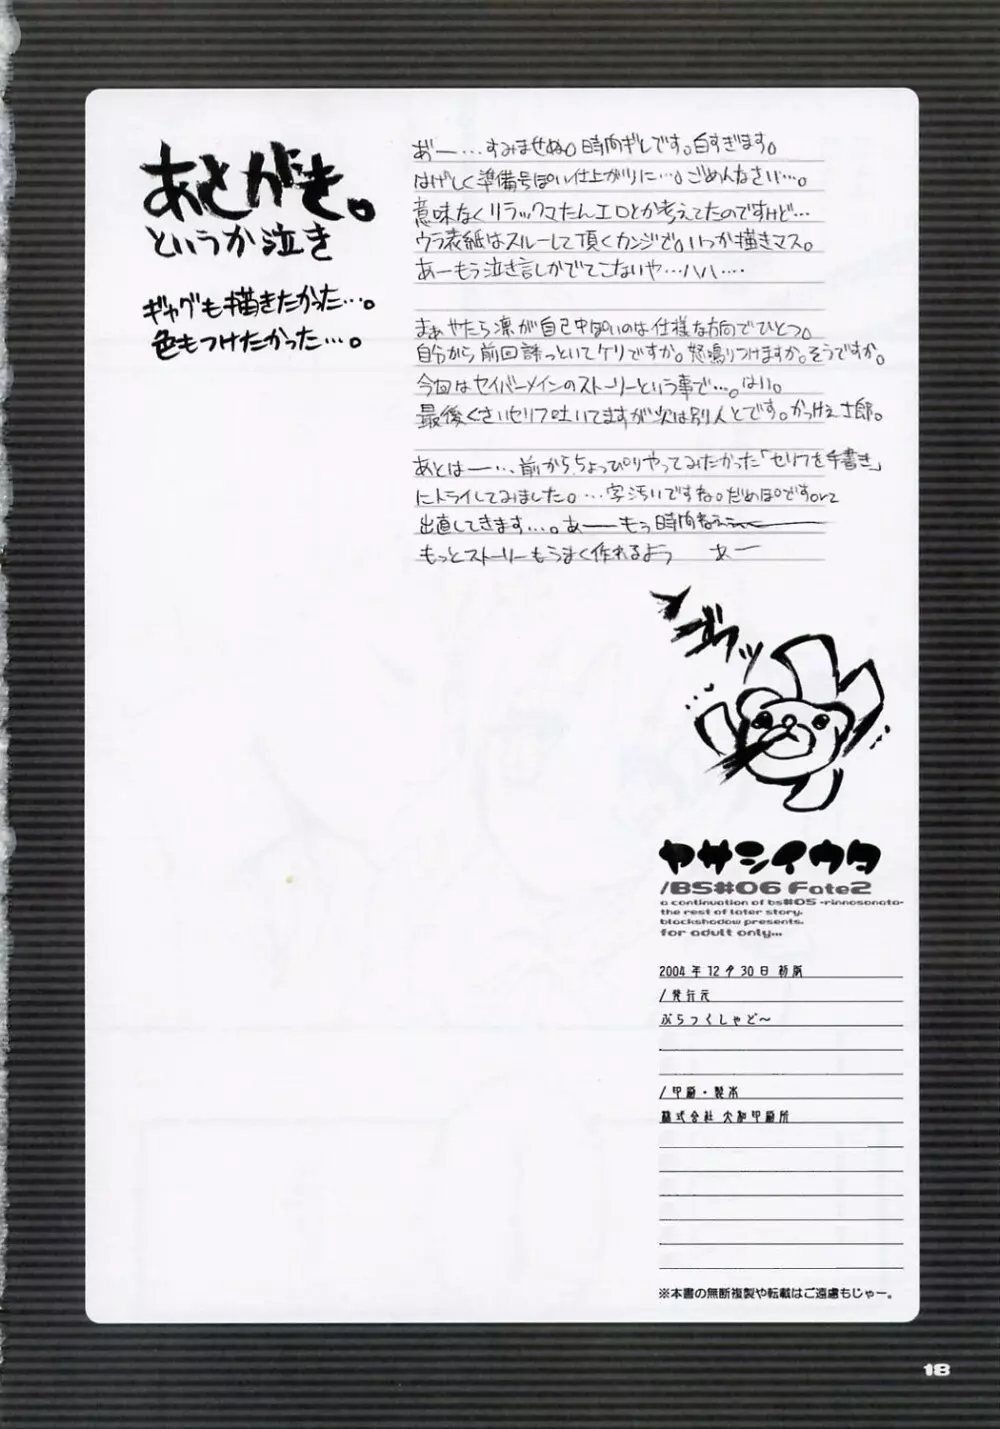 あとがき。
というか泣き
ギャグも描きたかった…。
色もつけたかった…。
あ゛ー…すみませぬ。時間ギレです。白すぎます。
はげしく準備号ぽい仕上がりに…。ごめんなさい…。
意味なくリラックマたんエロとか考えてたのですけど…
ウラ表紙はスルーして頂くカンジで。いつか描きマス。
あーもう泣き言しかでてこないや…ハハ…。
まぁやたら凛が自己中ぽいのは仕様な方向でひとつ。
自分から前回誘っといてケリですか。怒鳴りつけますか。そうですか。
今回はセイバーメインのストーリーという事で…。はい。
最後くさいセリフ吐いてますが次は別人とです。かっけぇ士郎。
あとはー…前からちょっぴりやってみたかった「セリフを手書き」
にトライしてみました。…字汚いですね。だめぽですorz
出直してきます…。あーーもう時間ねぇぇー
もっとストーリーもうまく作れるよう あー
ヤサシイウタ
/BS#06 Fate2
a continuation of bs#05 -rinnosonata-
the rest of later story.
blackshadow presents.
for adult only...
2004年12月30日 初版
/発行元
ぶらっくしゃど〜
/印刷・製本
株式会社 大和印刷所
※本書の無断複製や転載はご遠慮もじゃー。
18